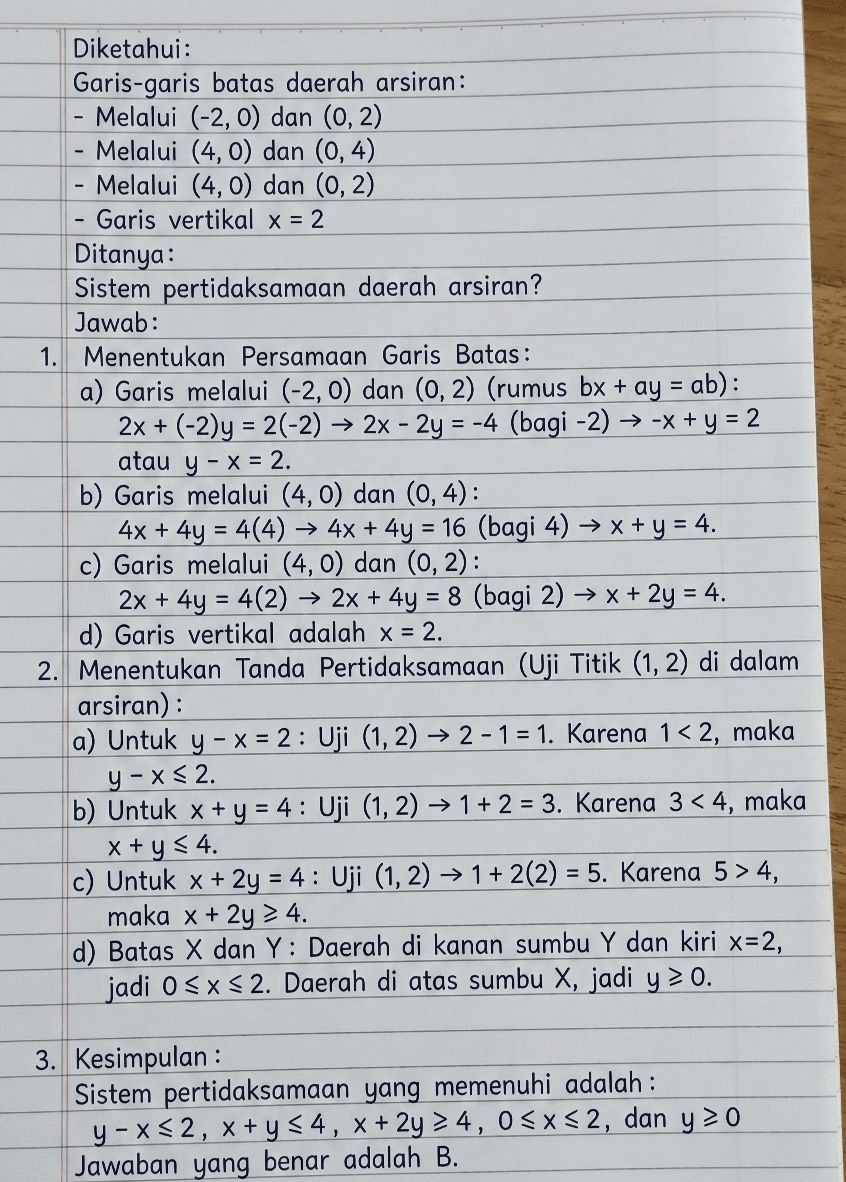 Diketahui:
Garis-garis batas daerah arsiran:
- Melalui (-2, 0) dan (0, 2)
- Melalui (4, 0) dan (0, 4)
- Melalui (4, 0) dan (0, 2)
- Garis vertikal x = 2
Ditanya:
Sistem pertidaksamaan daerah arsiran?
Jawab:
1. Menentukan Persamaan Garis Batas:
a) Garis melalui (-2, 0) dan (0, 2) (rumus bx + ay = ab):
2x + (-2)y = 2(-2) → 2x - 2y = -4 (bagi -2) → -x + y = 2
atau y - x = 2.
b) Garis melalui (4, 0) dan (0, 4):
4x + 4y = 4(4) → 4x + 4y = 16 (bagi 4) → x + y = 4.
c) Garis melalui (4, 0) dan (0, 2):
2x + 4y = 4(2) → 2x + 4y = 8 (bagi 2) → x + 2y = 4.
d) Garis vertikal adalah x = 2.
2. Menentukan Tanda Pertidaksamaan (Uji Titik (1, 2) di dalam
arsiran):
a) Untuk y - x = 2 : Uji (1, 2) → 2 - 1 = 1. Karena 1 < 2, maka
y - x ⩽ 2.
b) Untuk x + y = 4 : Uji (1, 2) → 1 + 2 = 3. Karena 3 < 4, maka
x + y ⩽ 4.
c) Untuk x + 2y = 4 : Uji (1, 2) → 1 + 2(2) = 5. Karena 5 > 4,
maka x + 2y ⩾ 4.
d) Batas X dan Y : Daerah di kanan sumbu Y dan kiri x=2,
jadi 0 ⩽ x ⩽ 2. Daerah di atas sumbu X, jadi y ⩾ 0.
3. Kesimpulan :
Sistem pertidaksamaan yang memenuhi adalah :
y - x ⩽ 2 , x + y ⩽ 4 , x + 2y ⩾ 4 , 0 ⩽ x ⩽ 2 , dan y ⩾ 0
Jawaban yang benar adalah B.